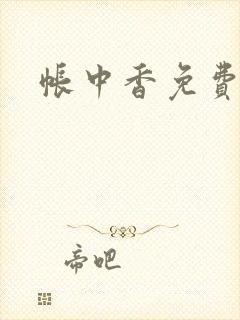 帐中香免費
帝吧